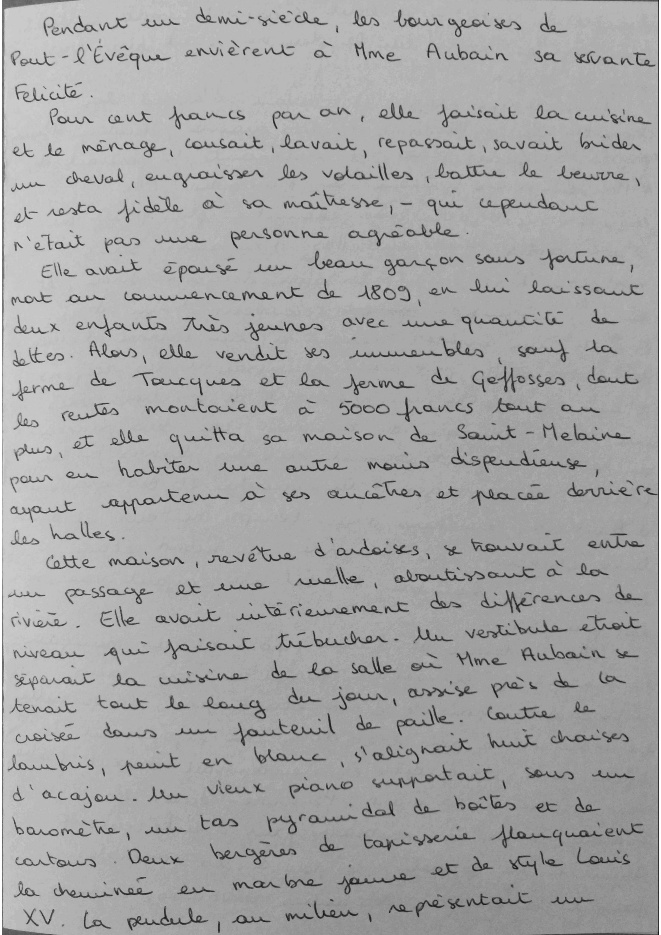 Pendant un demi-siècle, les bourgeoises de
Pont-l'Évêque envièrent à Mme Aubain sa servante
Felicité.
Pour cent francs par an, elle faisait la cuisine
et le ménage, cousait, lavait, repassait, savait brider
un cheval, engraisser les volailles, battre le beurre,
et resta fidèle à sa maîtresse, - qui cependant
n'était pas une personne agréable.
Elle avait épousé un beau garçon sans fortune,
mort au commencement de 1809, en lui laissant
deux enfants très jeunes avec une quantité de
dettes. Alors, elle vendit ses immeubles, sauf la
ferme de Toucques et la ferme de Geffosses, dont
les rentes montaient à 5000 francs tout au
plus, et elle quitta sa maison de Saint-Melaine
pour en habiter une autre moins dispendieuse,
ayant appartenu à ses ancêtres et placée derrière
les halles.
Cette maison, revêtue d'ardoises, se trouvait entre
un passage et une ruelle, aboutissant à la
rivière. Elle avait intérieurement des différences de
niveau qui faisait trébucher. Un vestibule étroit
séparait la cuisine de la salle où Mme Aubain se
tenait tout le long du jour, assise près de la
croisée dans un fauteuil de paille. Contre le
lambris, peint en blanc, s'alignait huit chaises
d'acajou. Un vieux piano supportait, sous un
baromètre, un tas pyramidal de boîtes et de
cartons. Deux bergères de tapisserie flanquaient
la cheminée en marbre jaune et de style Louis
XV. La pendule, au milieu, représentait un